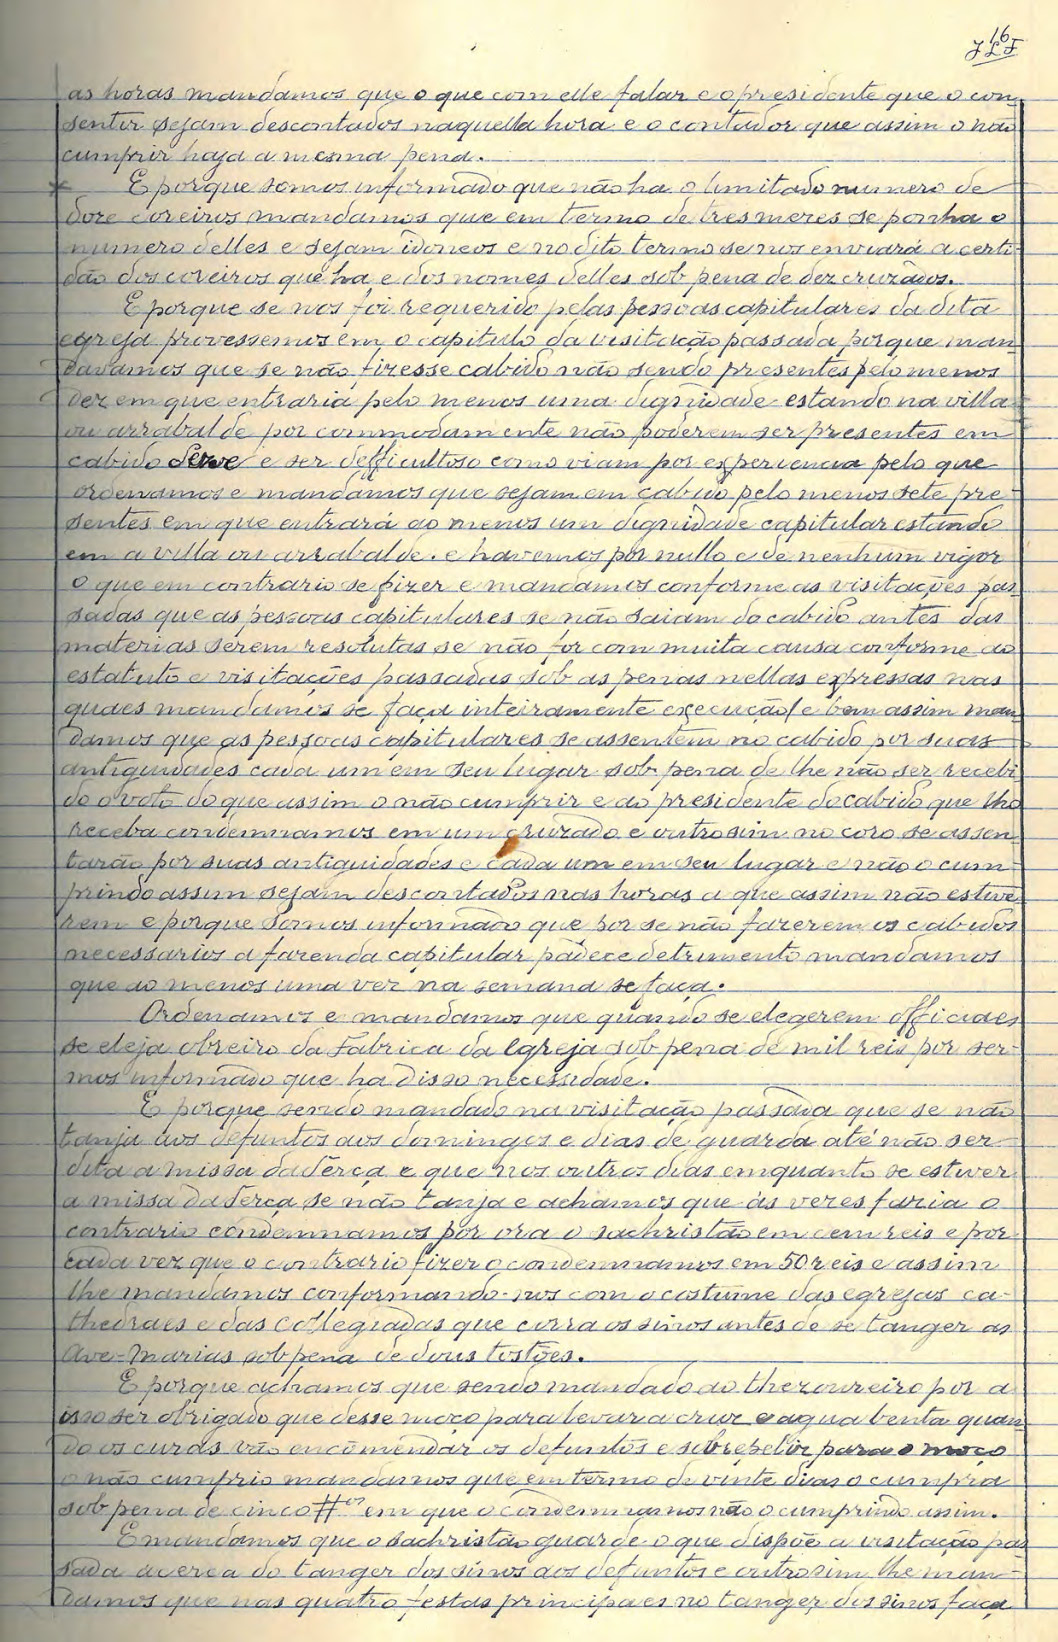 16
JLF
as horas mandamos que o que com elle falar e o presidente que o con-
sentir sejam descontados naquella hora e o contador que assim o não
cumprir haja a mesma pena.
E porque somos informado que não ha o limitado numero de
doze coreiros mandamos que em termo de tres mezes se ponha o
numero delles e sejam idoneos e no dito termo se nos enviará a certi-
dão dos coreiros que ha e dos nomes delles sob pena de dez cruzados.
E porque se nos foi requerido pelas pessoas capitulares da dita
egreja provessemos em o capitulo da visitação passada porque man-
davamos que se não fizesse cabido não sendo presentes pelo menos
dez em que entraria pelo menos uma dignidade estando na villa
ou arrabalde por commodamente não poderem ser presentes em
cabido e ser difficultoso como viam por experiencia pelo que
ordenamos e mandamos que sejam em cabido pelo menos sete pre-
sentes em que entrará ao menos um dignidade capitular estando
em a villa ou arrabalde. e havemos por nullo e de nenhum vigor
o que em contrario se fizer e mandamos conforme as visitações pas-
sadas que as pessoas capitulares se não saiam do cabido antes das
materias serem resolutas se não for com muita causa conforme ao
estatuto e visitações passadas sob as penas nellas expressas nas
quaes mandamos se faça inteiramente execução e bem assim man-
damos que as pessoas capitulares se assentem no cabido por suas
antiguidades cada um em seu lugar sob pena de lhe não ser recebi-
do o voto do que assim o não cumprir e ao presidente do cabido que lho
receba condemnamos em um cruzado e outrosim no coro se assen-
tarão por suas antiguidades e cada um em seu lugar e não o cum-
prindo assim sejam descontados nas horas a que assim não estive-
rem e porque somos informado que por se não fazerem os cabidos
necessarios a fazenda capitular padece detrimento mandamos
que ao menos uma vez na semana se faça.
Ordenamos e mandamos que quando se elegerem officiaes
se eleja obreiro da Fabrica da Egreja sob pena de mil reis por ser-
mos informado que ha disso necessidade.
E porque sendo mandado na visitação passada que se não
tanja aos defuntos aos domingos e dias de guarda até não ser
dita a missa da Terça e que nos outros dias emquanto se estiver
a missa da Terça se não tanja e achamos que ás vezes fazia o
contrario condemnamos por ora o sachristão em cem reis e por
cada vez que o contrario fizer o condemnamos em 50 reis e assim
lhe mandamos conformando-nos com o costume das egrejas ca-
thedraes e das Collegiadas que corra os sinos antes de se tanger as
Ave-Marias sob pena de dous tostões.
E porque achamos que sendo mandado ao thezoureiro por a
isso ser obrigado que desse moço para levar a cruz e agua benta quan-
do os curas vão encomendar os defuntos e sobrepeliz para o moço
o não cumprio mandamos que em termo de vinte dias o cumpra
sob pena de cinco # em que o condemnamos não o cumprindo assim.
E mandamos que o sachristão guarde o que dispõe a visitação pas-
sada acerca do tanger dos sinos aos defuntos e outrosim lhe man-
damos que nas quatro festas principaes no tanger dos sinos faça